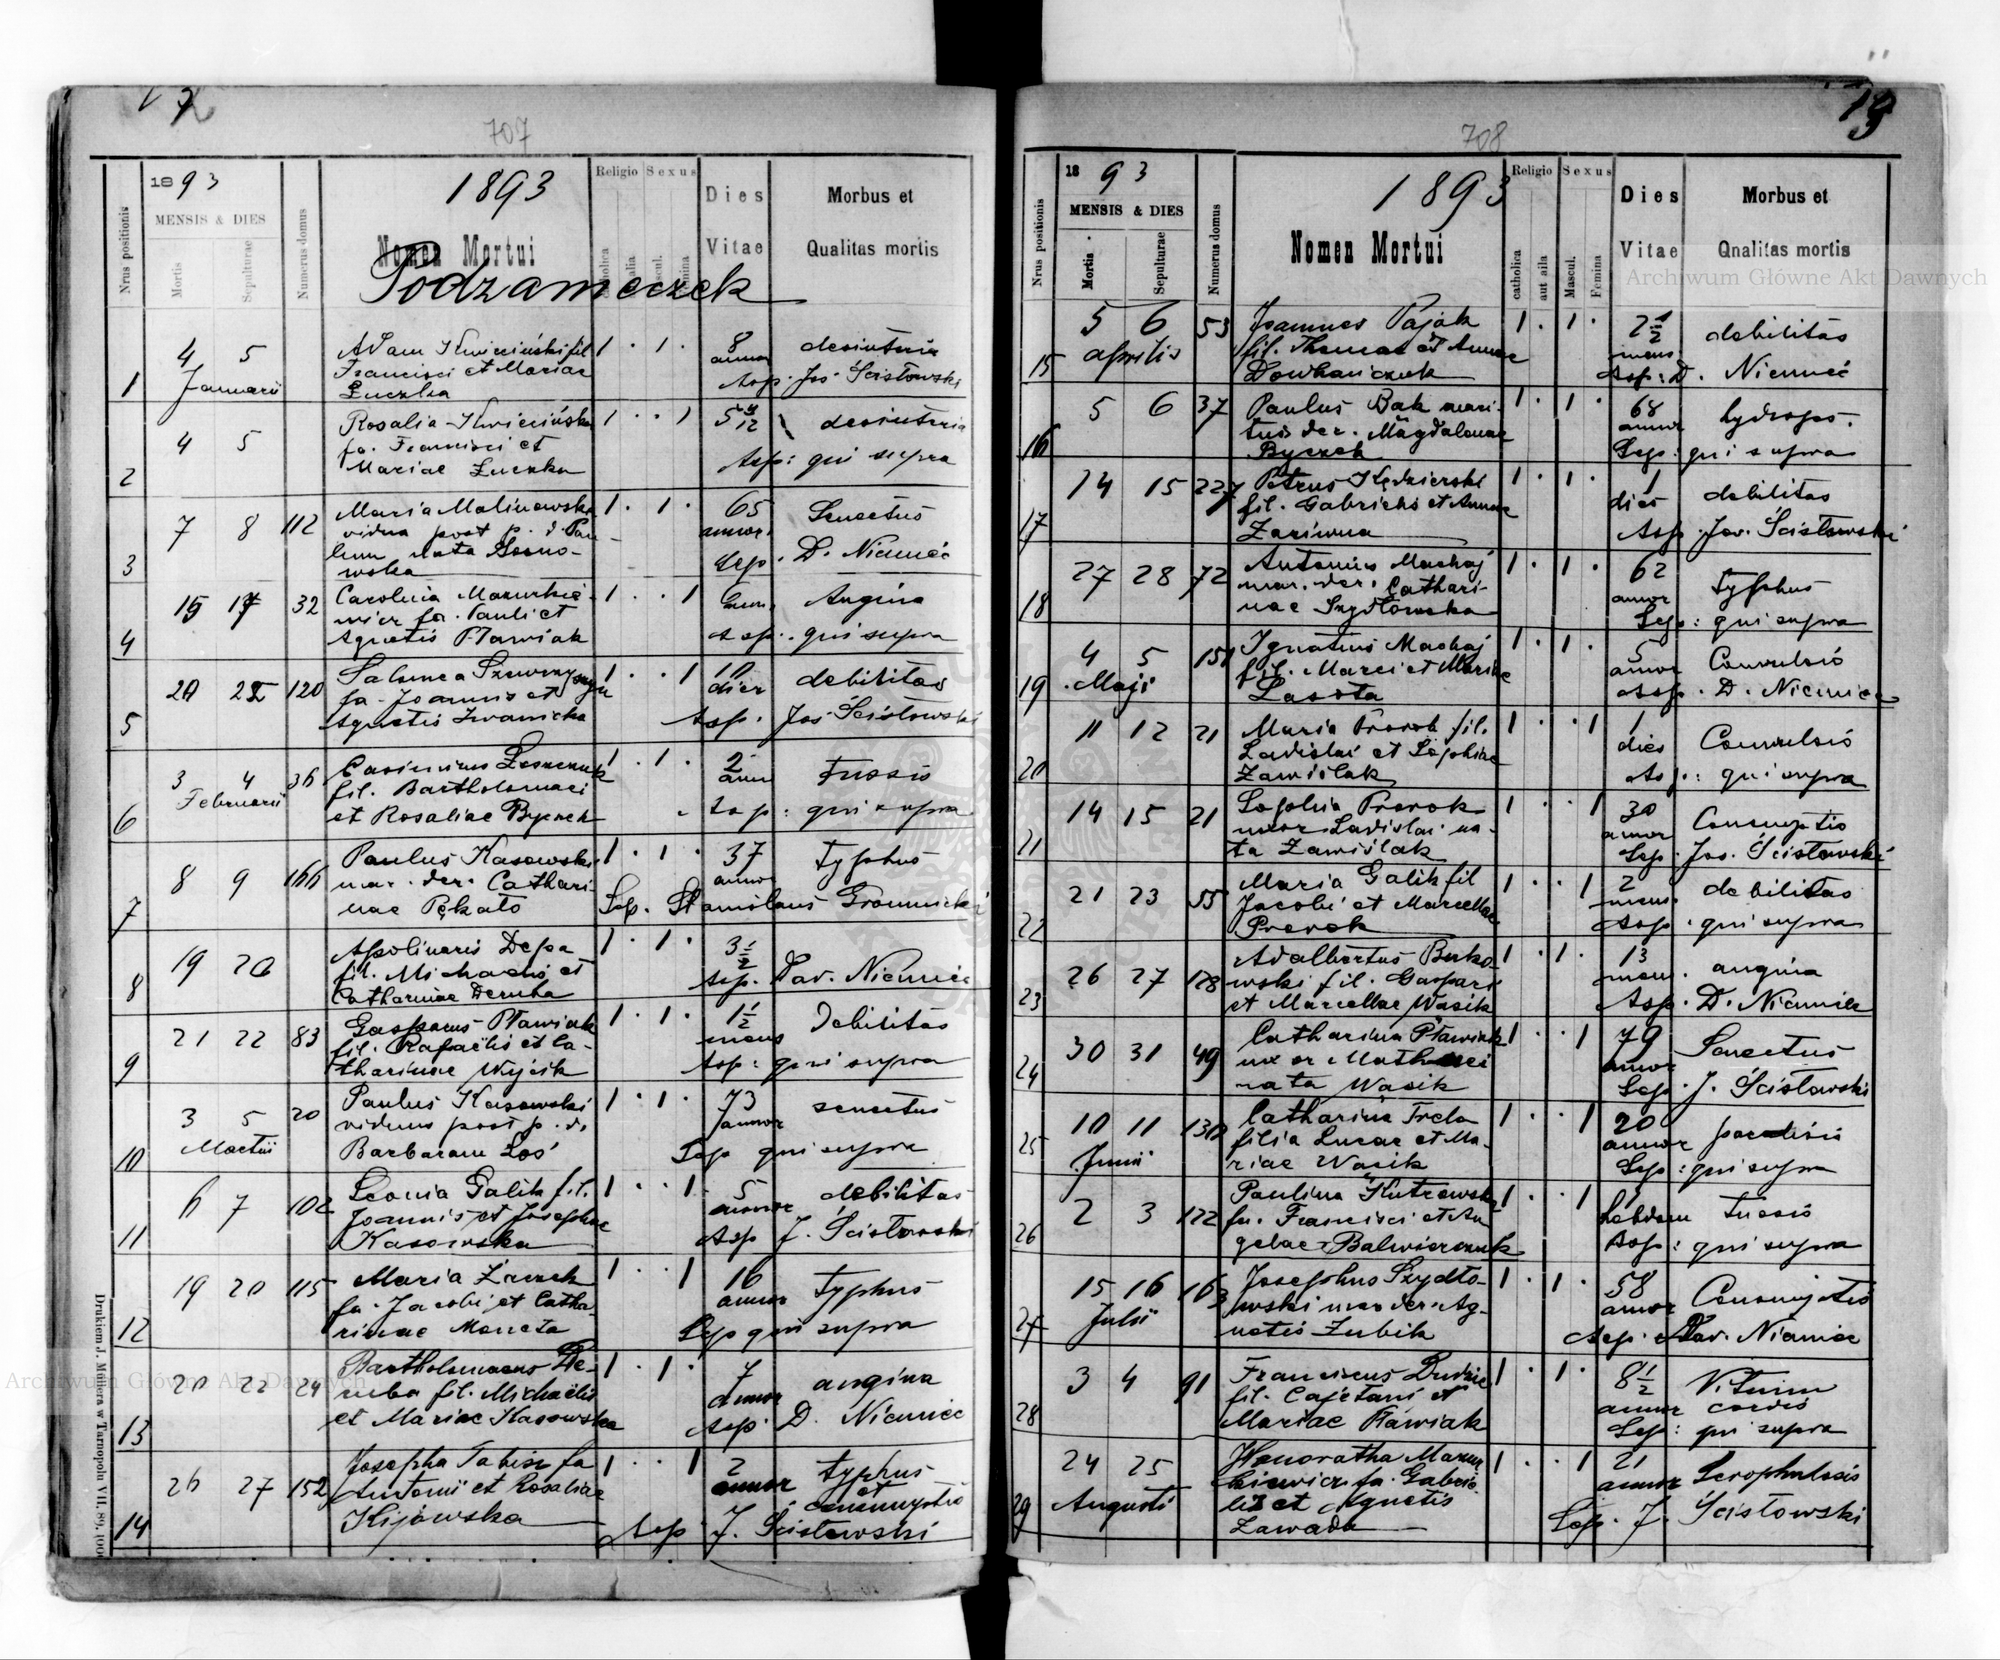 707
1893
1893
Religio Sexus
Dies
Morbus et
MENSIS & DIES
Nomen Mortui
Vitae
Qualitas mortis
Nrus positionis
Mortis
Sepulturae
Numerus domus
Podzameczek
1 4 5 Januarii
Adam Kwieciński fil
Francisci et Mariae
Łuczka
1 . 1 . 8 annor desinteria
Asp. Jos Ścisłowski
2 4 5
Rosalia Kwiecińska
fa. Francisci et
Mariae Łuczka
1 . . 1 desinteria
Asp: qui supra
3 7 8 112
Maria Malinowska
vidua post p. d. Pau
lum nata Sosno-
wska
1 . 1 . 65 annor. Senectus
Sep. D. Niemiec
4 32
Carolina Mazurkie-
wicz fa. Pauli et
Agnetis Pławiak
1 . . 1 Angina
Asp. qui supra
5 120
Salomea
fa. Joannis et
Agnetis Iwanicka
1 . . 1 10 dier debilitas
Asp. Jos Ścisłowski
6 3 4 Februarii 36
Casimirus
fil. Bartholomaei
et Rosaliae Byczek
1 . 1 . 2 ann Tussis
Asp: qui supra
7 8 9 166
Paulus Kasowski
mar. der. Cathari-
nae Pękato
1 . 1 . 37 annor typhus
Sep. Stanislaus Gromnicki
8 19 20
Apolinaris Depa
fil. Michaelis et
Catharinae Deruha
1 . 1 . 3 1/2
Asp. Dav. Niemiec
9 21 22 83
Gasparus Pławiak
fil. Rafaelis et Ca-
tharinae Wójcik
1 . 1 . 1 1/2 mens Debilitas
Asp: qui supra
10 3 5 Martii 20
Paulus Kasowski
viduus post p. d.
Barbaram Łoś
1 . 1 . 73 annor senectus
Sep qui supra
11 6 7 102
Leonia Galik fil.
Joannis et Josephae
Kasowska
1 . . 1 5 debilitas
Asp J. Ścisłowski
12 19 20 115
Maria
fa. Jacobi et Catha
rinae Moneta
1 . . 1 16 annor typhus
Sep qui supra
13 20 22 24
Bartholomaeus De-
ruba fil. Michaelis
et Mariae Kasowska
1 . 1 . 7 annor angina
Asp. D. Niemiec
14 26 27 152
Josepha Tabisz fa
Antonii et Rosaliae
Kijowska
1 . . 1 2 annor typhus
et
consumptio
Asp J. Ścisłowski
Drukiem J. Müllera w Tarnopolu VII. 89.
708
19
1893
1893
Religio Sexus
Dies
Morbus et
MENSIS & DIES
Nomen Mortui
Vitae
Qnalitas mortis
Nrus positionis
Mortis
Sepulturae
Numerus domus
catholica
aut alia
Mascul.
Femina
15 5 6 aprilis 53
Joannes Pająk
fil. Thomae et Annae
Dowhańczuk
1 . 1 . 2 1/2 mens debilitas
Asp: D. Niemiec
16 5 6 37
Paulus Bak mari-
tus der. Magdalenae
Byczek
1 . 1 . 68 annor hydrops.
Sep: qui supra
17 14 15 227
Petrus Kędzierski
fil. Gabrielis et Annae
Zariwna
1 . 1 . 1 dies debilitas
Asp. Jos. Ścisłowski
18 27 28 72
Antonius Machaj
mar. der. Cathari-
nae Szydłowska
1 . 1 . 62 annor Typhus
Sep: qui supra
19 4 5 Maji 151
Ignatius Machaj
fil. Marci et Mariae
Lasota
1 . 1 . 5 annor Convulsio
Asp. D. Niemiec
20 11 12 21
Maria Prorok fil.
Ladislai et Sophiae
Zawiślak
1 . . 1 1 dies Convulsio
Asp: qui supra
21 14 15 21
Sophia Prorok
uxor Ladislai na-
ta Zawiślak
1 . . 1 30 annor Consumptio
Sep. Jos. Ścisłowski
22 21 23 55
Maria Galik fil
Jacobi et Marcellae
Prorok
1 . . 1 2 mens. debilitas
Asp. qui supra
23 26 27 128
Adalbertus Butko-
wski fil. Gaspari
et Marcellae Wasik
1 . 1 . 13 mens. angina
Asp. D. Niemiec
24 30 31 49
Catharina Pławiak
uxor Mathaei
nata Wasik
1 . . 1 79 annor Senectus
Sep. J. Ścisłowski
25 10 11 Junii 130
Catharina Trela
filia Lucae et Ma-
riae Wasik
1 . . 1 20 annor
Sep: qui supra
26 2 3 122
Paulina Kutrowska
fa. Francisci et An
gelae Balwierczuk
1 . . 1 1 hebdom Tussis
Asp: qui supra
27 15 16 Julii 163
Josephus Szydło-
wski mar der. Ag-
netis Zubik
1 . 1 . 58 annor Consumptio
Asp. Dav. Niemiec
28 3 4 91
Franciscus Dudzic
fil. Cajetani et
Mariae Pławiak
1 . 1 . 8 1/2 annor Vitium
cordis
Sep: qui supra
29 24 25 Augusti
Honoratha Mazur
kiewicz fa. Gabrie-
lis et Agnetis
Zawada
1 . . 1 21 annor Scrophulosis
Sep. J. Ścisłowski
Archiwum Główne Akt Dawnych
Archiwum Główne Akt Dawnych